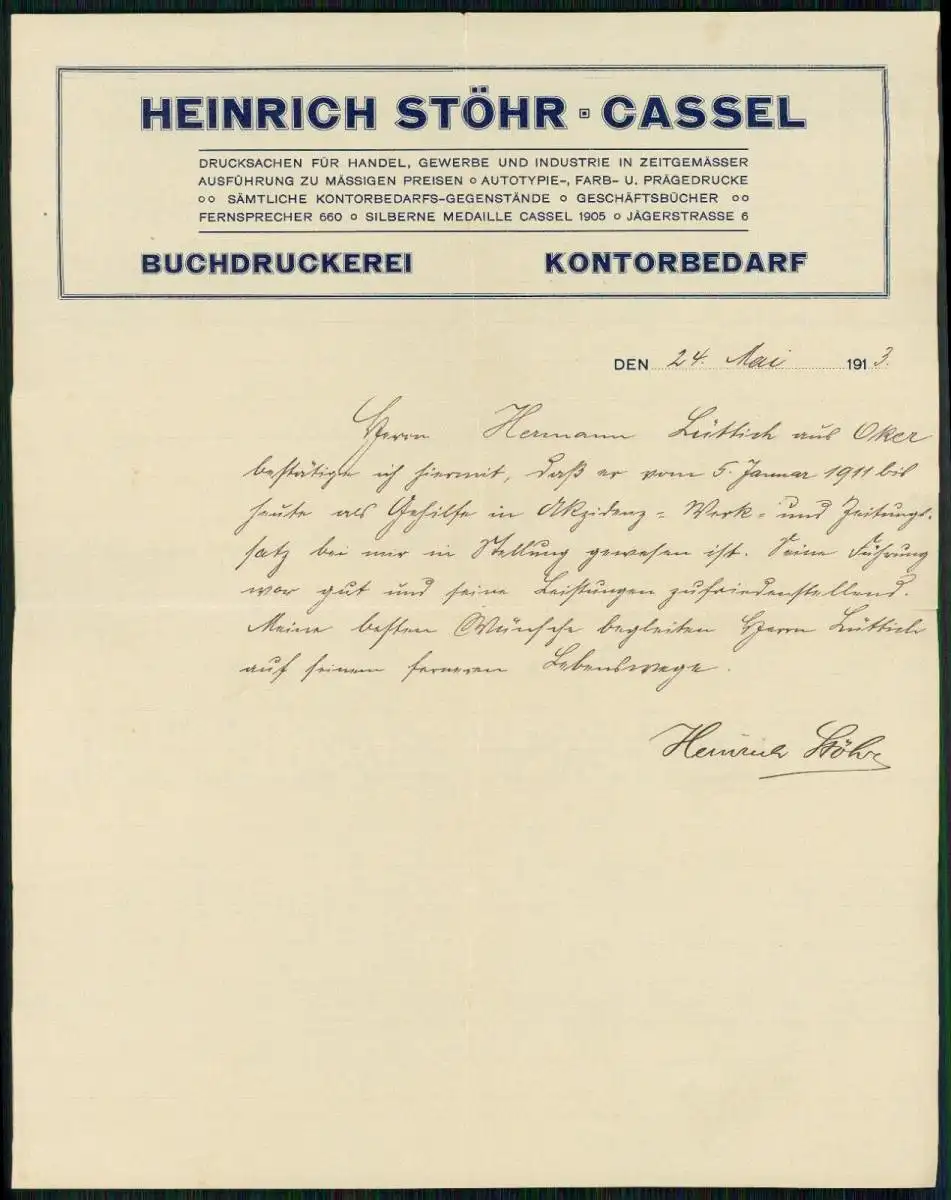 HEINRICH STÖHR ▫ CASSEL
DRUCKSACHEN FÜR HANDEL, GEWERBE UND INDUSTRIE IN ZEITGEMÄSSER
AUSFÜHRUNG ZU MÄSSIGEN PREISEN o AUTOTYPIE-, FARB- U. PRÄGEDRUCKE
o o SÄMTLICHE KONTORBEDARFS-GEGENSTÄNDE o GESCHÄFTSBÜCHER o o
FERNSPRECHER 660 o SILBERNE MEDAILLE CASSEL 1905 o JÄGERSTRASSE 6
BUCHDRUCKEREI KONTORBEDARF
DEN 24. Mai 1913.
Herrn Hermann Lüttich aus Oker
bestätige ich hiermit, daß er vom 5. Januar 1911 bis
heute als Gehilfe in Akzidenz-, Werk- und Zeitungs-
satz bei mir in Stellung gewesen ist. Seine Führung
war gut und seine Leistungen zufriedenstellend.
Meine besten Wünsche begleiten Herrn Lüttich
auf seinem ferneren Lebenswege.
Heinrich Stöhr